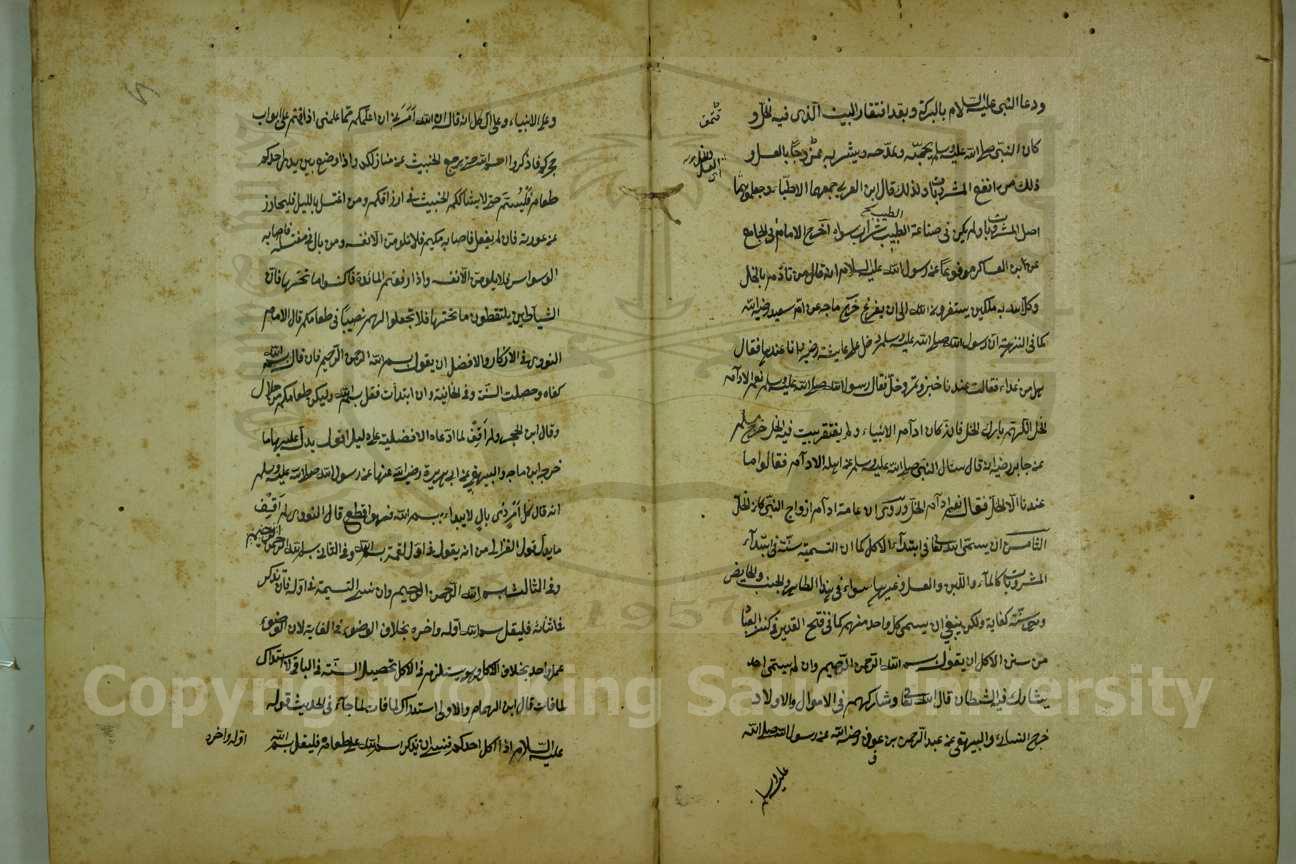 ودعا النبى عليه السلام بالبركة وبعد افتقار البيت الذى فيه الخل و
كان النبى صلى الله عليه وسلم يحبه ويمدحه ويشربه ممزوجا بالعسل و
ذلك من انفع المشروبات ولذلك قال ابن العربى جمعهما الاطباء وجعلوهما
اصل المشروبات ولم يكن فى صناعة الطب شراب سواه اخرج الامام فى الجامع
عن ابن العساكر مرفوعا عن رسول الله عليه السلام انه قال من تأدم بالخل
وكل الله به ملكين يستغفرون الله الى ان يفرغ خرج ماجه عن ام سعيد رضى الله
كما فى النزهة ان رسول الله صلى الله عليه وسلم دخل على عايشة رضى وانا عندها فقال
هل من غداء فقالت عندنا خبز وتمر وخل فقال رسول الله صلى الله عليه وسلم نعم الادام
الخل اللهم بارك الخل فانه كان ادام الانبياء ولم يفتقر بيت فيه الخل خرج مسلم
عن جابر رضى انه قال سئال النبى صلى الله عليه وسلم عن اهله الادام فقالوا ما
عندنا الا الخل فقال نعم ادام الخل وروى ان عامة ادام ازواج النبى كان الخل
الثامن ان يسمى الله تعالى فى ابتداء الاكل كما ان التسمية سنة فى ابتداء
المشروبات كالماء واللبن والعسل وغيرها سواء فى هذا الطاهر والجنب والحايض
وهى سنة كفاية ولكن ينبغى ان يسمى كل واحد منهم كما فى فتح القدير فى كنز العباد
من سنن الاكل ان يقول بسم الله الرحمن الرحيم وان لم يسمى احد
يشارك فيه الشيطان قال الله تعالى وشاركهم فى الاموال والاولاد
خرج النسائى والبيهقى عن عبد الرحمن بن عوف رضى الله عنه رسول الله صلى الله
عليه وسلم
وعلى الانبياء وعلى ال كل انه قال ان الله امرنى ان اعلمكم مما علمنى اذا قمتم على ابواب
حجركم فاذكروا اسم الله حتى يرجع الخبيث عن منازلكم واذا وضع بين يدى احدكم
طعام فليسم حتى لا يشارككم الخبيث فى ارزاقكم ومن اغتسل بالليل فليحاذر
عن عورته فان لم يفعل فاصابه فلا يلومن الا نفسه ومن بال فى مغتسله فاصابه
الوسواس فلا يلومن الا نفسه واذا رفعتم المائدة فاكنسوا ما تحتها فان
الشياطين يلتقطون ما تحتها فلا تجعلوا لهم نصيبا فى طعامكم قال الامام
النووى فى الاذكار والافضل ان يقول بسم الله الرحمن الرحيم فان قال بسم الله
كفاه وحصلت السنة وفى الخانية وان ابتدأت فقل بسم الله وليكن طعامكم من حلال
وقال ابن الحجر ولم اقف لما ادعاه الافضلية على دليل يدل عليها ما
خرجه ابن ماجه والبيهقى عن ابى هريرة رضى الله عنها عن رسول الله صلى الله عليه وسلم
انه قال كل امر ذى بال لا يبداء بسم الله فهو اقطع قال النووى لم اقف
ما يدل قول الغزالى من انه يقول فى اول لقمة بسم الله وفى الثانية بسم الله الرحمن
وفى الثالثة بسم الله الرحمن الرحيم وان نسى التسمية فى اوله فان تذكر
فى اثنائه فليقل بسم الله اوله واخره بخلاف الوضوء فى الغاية لان الوضوء
عمل واحد بخلاف الاكل وهو يستلزم فى الاكل تحصيل السنة فى الباقى لا استدراك
لما فات قال ابن الهمام والاولى استدراك لما فات لما جاء فى الحديث قوله
عليه السلام اذا اكل احدكم فنسى ان يذكر اسم الله على طعام فليقل بسم الله
اوله واخره
Copyright © King Saud University
1957